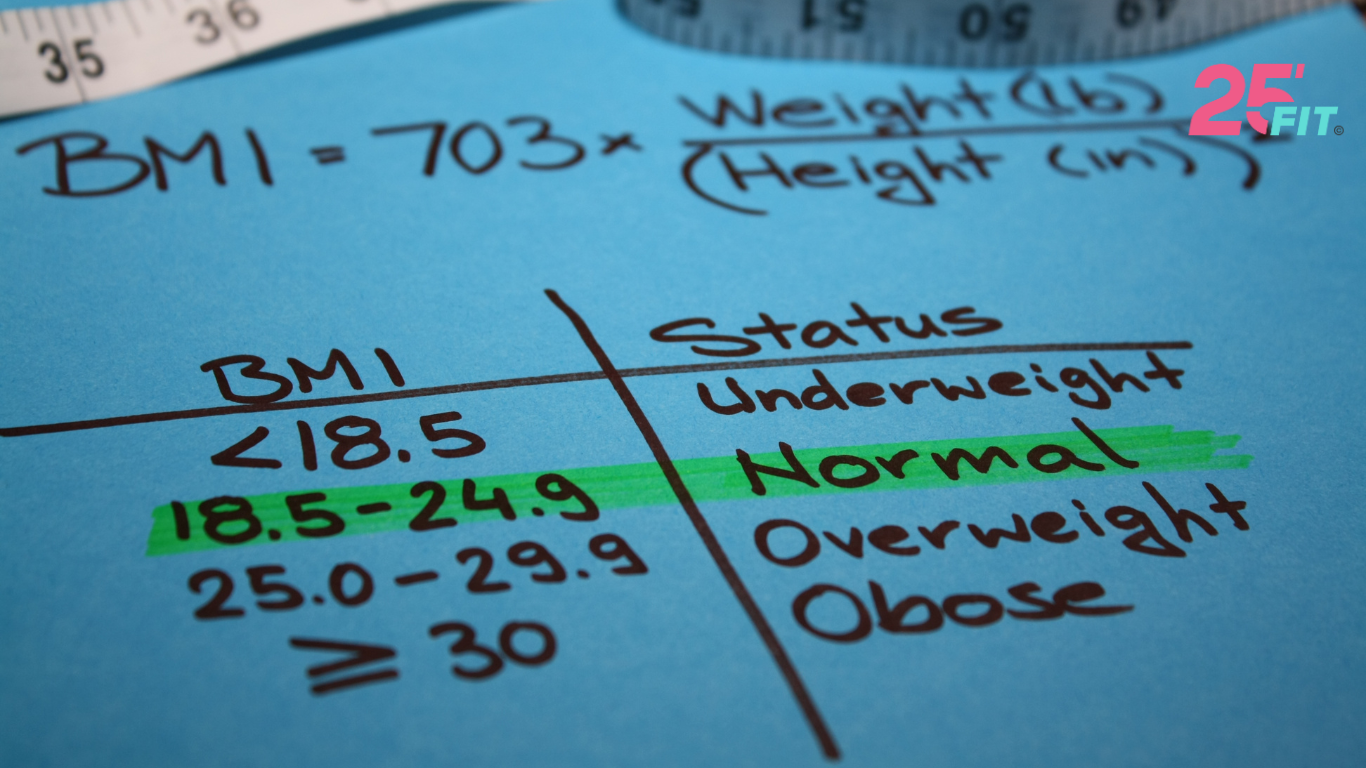 35 36 51 50 49
25' FIT©
BMI = 703 × Weight (lb)
(Height (in))²
BMI Status
<18.5 Underweight
18.5-24.9 Normal
25.0-29.9 Overweight
≥ 30 Obose